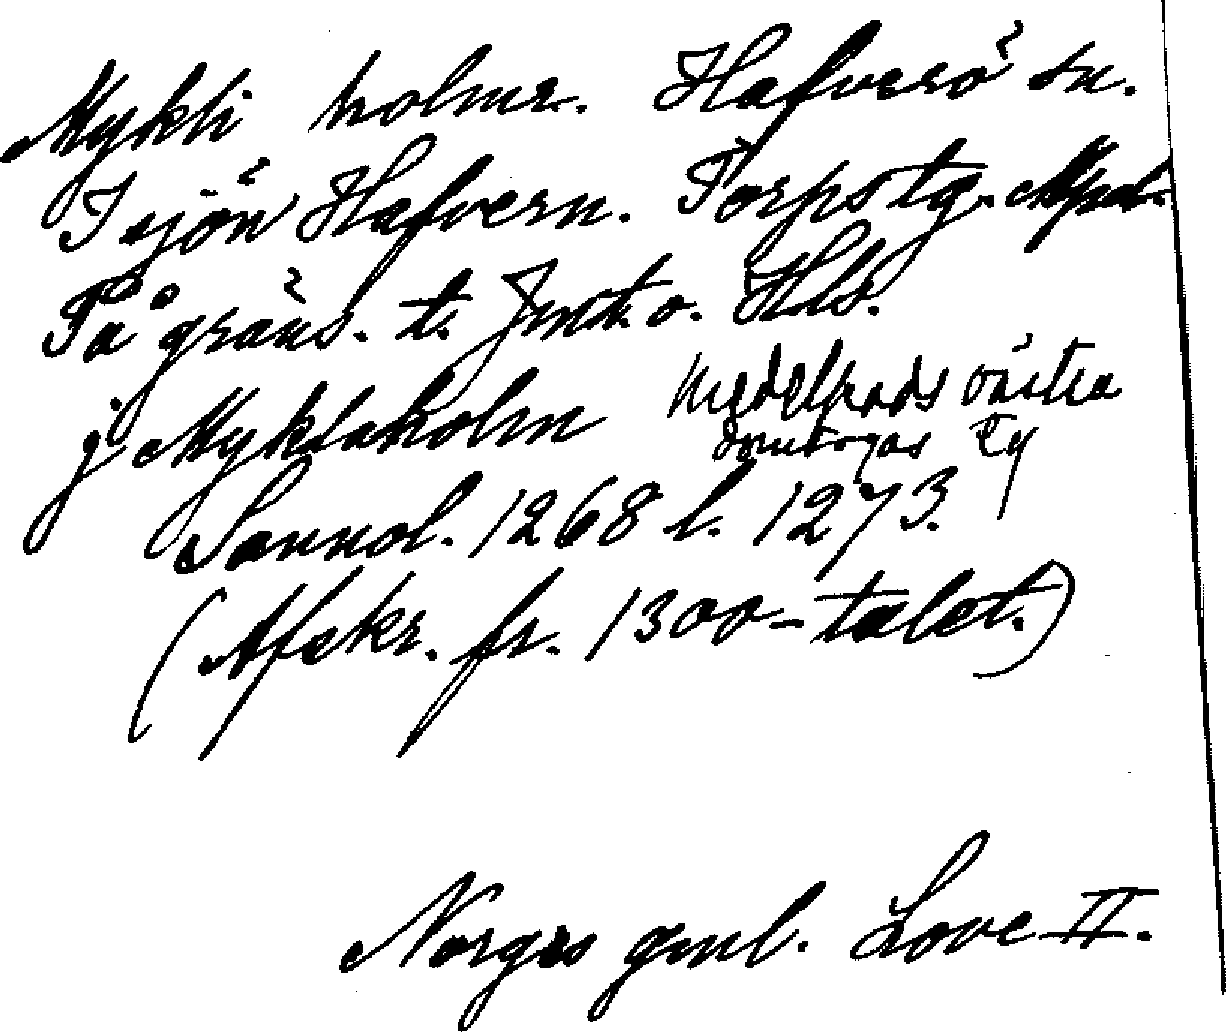 Mykli holmr. Hafverö sn.
I sjön Hafvern. Torps tg. Mpd.
På gräns. t. Jmt. o. Hls.
j Myklaholm Medelpads västra
domsagas tg
Sannol. 1268 l. 1273.
(Afskr. fr. 1300-talet.)
Norges gml. Love II.